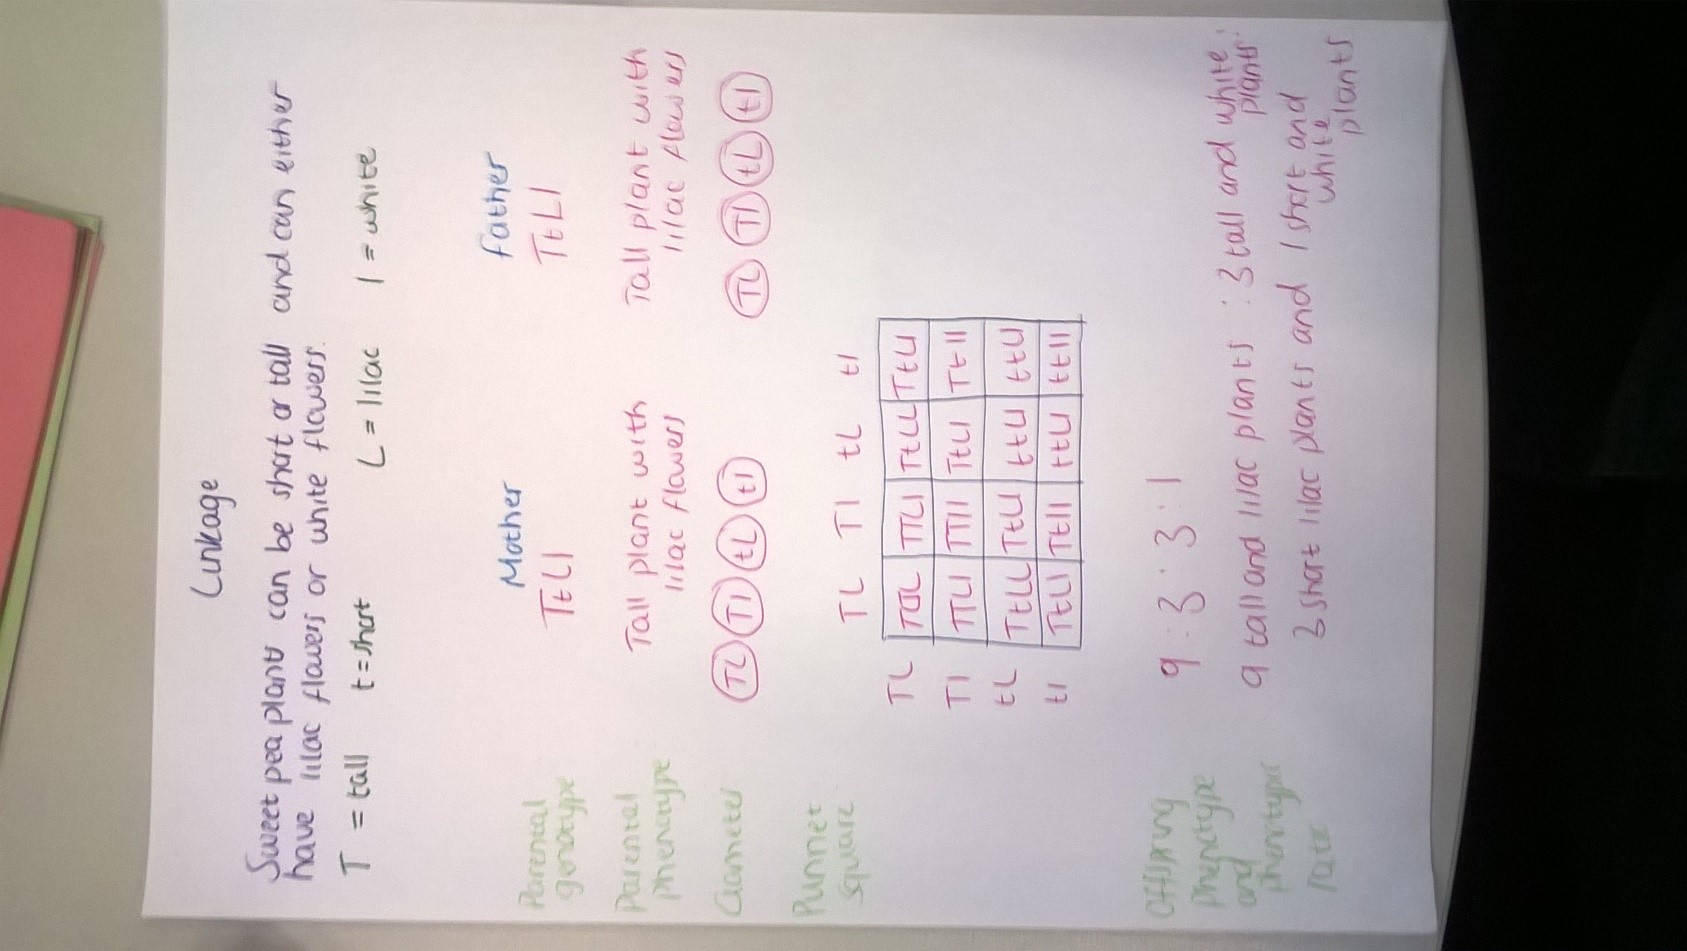 Linkage
Sweet pea plant can be short or tall and can either
have lilac flowers or white flowers.
T = tall t = short L = lilac l = white
Mother Father
Parental TtLl TtLl
genotype
Parental Tall plant with Tall plant with
phenotype lilac flowers lilac flowers
Gametes TL Tl tL tl TL Tl tL tl
Punnet TL Tl tL tl
square
TL TTLL TTLl TtLL TtLl
Tl TTLl TTll TtLl Ttll
tL TtLL TtLl ttLl ttLl
tl TtLl Ttll ttLl ttll
Offspring 9 : 3 : 3 : 1
phenotype
and 9 tall and lilac plants : 3 tall and white :
plants
phenotypic 3 short lilac plants and 1 short and
white
ratio plants